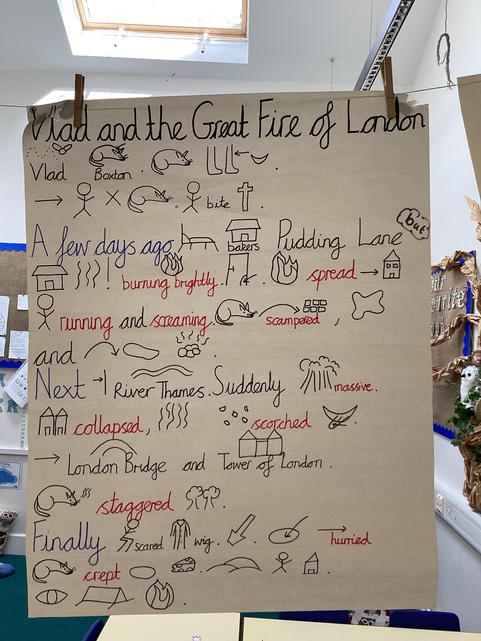 Vlad and the Great Fire of London
Vlad Boxton .
bite .
but
A few days ago bakers Pudding Lane
! burning brightly . . spread
running and screaming. scampered ,
and .
Next River Thames. Suddenly massive.
collapsed, scorched .
London Bridge and Tower of London .
staggered .
Finally scared wig. . . hurried
crept . .
.